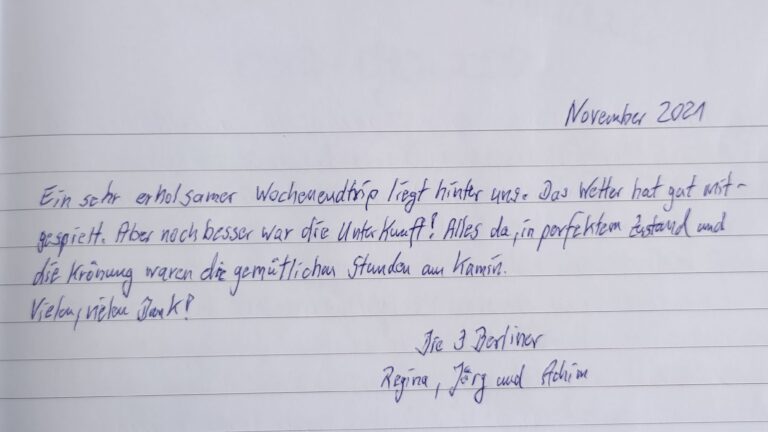 November 2021
Ein sehr erholsamer Wochenendtrip liegt hinter uns. Das Wetter hat gut mit-
gespielt. Aber noch besser war die Unterkunft! Alles da, in perfektem Zustand und
die Krönung waren die gemütlichen Stunden am Kamin.
Vielen, vielen Dank!
Die 3 Berliner
Regina, Jörg und Achim